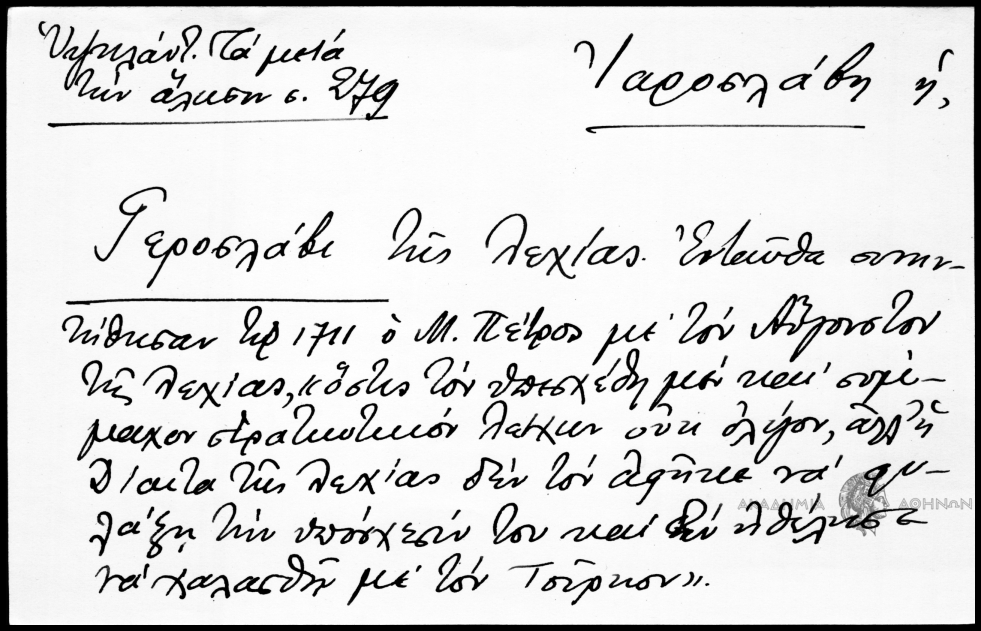 Ὑψηλάντ. Τά μετά
τήν ἅλωσιν σ. 279
Ἰαροσλάβη ἤ,
Γεροσλάβι τῆς Λεχίας. Ἐνταῦθα συνην-
τήθησαν τῷ 1711 ὁ Μ. Πέτρος μέ τόν Αὔγουστον
τῆς Λεχίας, ὅστις τόν ὑπεσχέθη μέν καί σύμ-
μαχον στρατιωτικόν Λέχικον οὐκ ὀλίγον, ἀλλ' ἡ
Δίαιτα τῆς Λεχίας δέν τόν ἀφῆκε νά φυ-
λάξῃ τήν ὑπόσχεσίν του καί δέν ἠθέλησε
νά χαλασθῇ μέ τόν Τοῦρκον».
ΑΚΑΔΗΜΙΑ ΑΘΗΝΩΝ